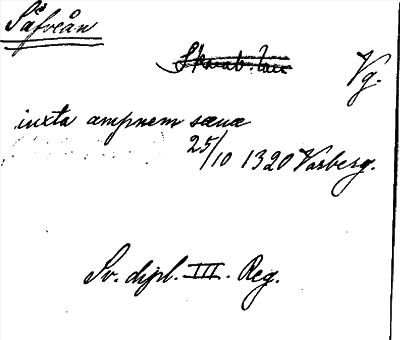 Säfveån
Skarab. län
Vg.
iuxta ampnem sæuæ
25/10 1320 Varberg.
Sv. dipl. III. Reg.